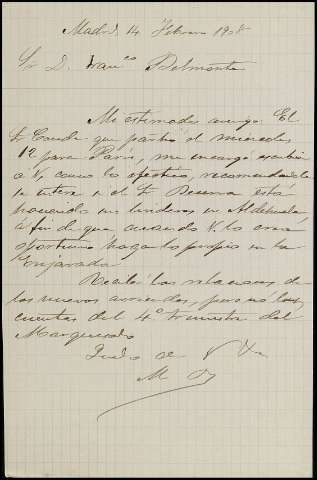 Madrid 14 Febrero 1908
Sr D. Franco Belmonte
Mi estimado amigo: El
Sr Conde que partió el miércoles
12 para París, me encargó escribir
a V. como lo efectúo, recomendándole
se entere si el Sr Becerra está
poniendo los linderos en Aldehuela,
a fin de que cuando V. lo crea
oportuno haga lo propio en la
Enjarada
Recibí las relaciones de
los nuevos arriendos, pero no las
cuentas del 4º trimestre del
Marquesado
Quedo de V
M